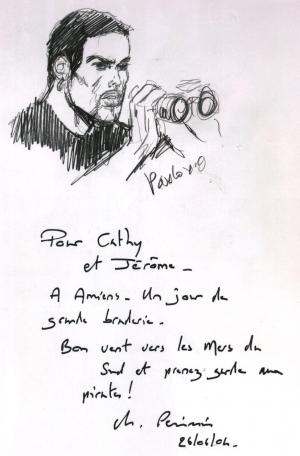 Pour Cathy
et Jérôme –
A Amiens – Un jour de
grande braderie.
Bon vent vers les Mers du
Sud et prenez garde aux
pirates !
26/06/04.